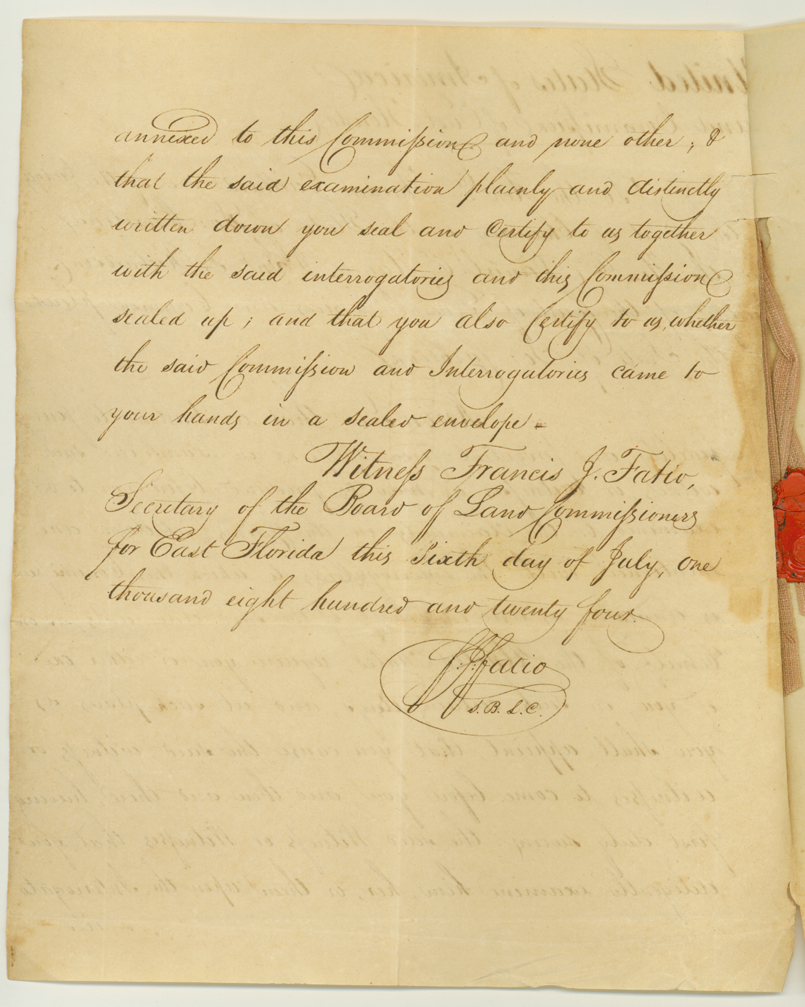 annexed to this Commission and none other; &
that the said examination plainly and distinctly
written down you seal and Certify to us together
with the said interrogatories and this Commission
sealed up; and that you also Certify to us, whether
the said Commission and Interrogatories came to
your hands in a sealed envelope.
Witness Francis J. Fatio,
Secretary of the Board of Land Commissioners
for East Florida this Sixth day of July, one
thousand eight hundred and twenty four.
F. J. Fatio
S. B. L. C.